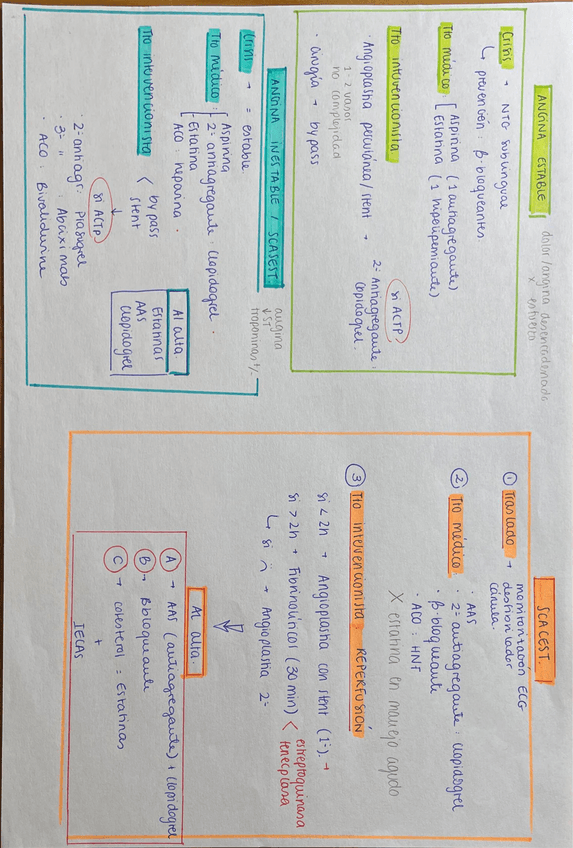 ANGINA ESTABLE
dolor/angina desencadenado
x esfuerzo
Crisis → NTG sublingual
↳ prevención: β-bloqueantes
Tto médico: [ Aspirina (1 antiagregante)
Estatina (1 hipolipemiante)
Tto intervencionista
· Angioplastia percutánea/stent → 2º Antiagregante:
clopidogrel.
si ACTP
1-2 vasos
no complejidad
· cirugía → bypass
ANGINA INESTABLE / SCASEST.
angina
↓ST
troponinas +/-
Crisis → = estable
Tto médico: [ Aspirina
2º antiagregante: clopidogrel.
Estatina
ACO: heparina.
Tto intervencionista < bypass
stent
si ACTP
· 2º antiagr: Prasugrel
· 3º " : Abciximab
· ACO: Bivalidurine
Al alta
Estatinas
AAS
Clopidogrel
SCACEST.
① Traslado → monitorización ECG
desfibrilador
cánula.
② Tto médico: · AAS
· 2º antiagregante: clopidogrel
· β-bloqueante
· ACO: HNF
X estatina en manejo agudo
③ Tto intervencionista: REPERFUSIÓN
si < 2h → Angioplastia con stent (1ª). →
si > 2h → Fibrinolíticos (30 min) < estreptoquinasa
tenecplasa
↳ si → Angioplastia 2ª
Al alta.
Ⓐ → AAS (antiagregante) + Clopidogrel
Ⓑ → Bbloqueante
Ⓒ → colesterol = Estatinas
+
IECAs